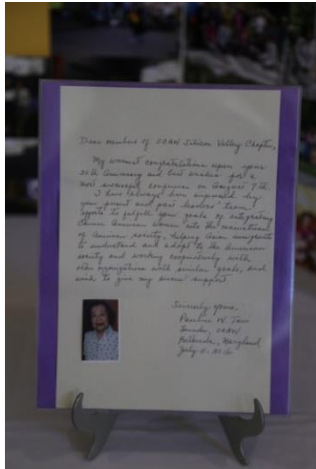 Dear members of OCAW Silicon Valley Chapter,
My warmest congratulations upon your
30th Anniversary and best wishes for a
most successful congress on August 7th.
I have always been impressed by
your present and past leaders' team
efforts to fulfill your goals of integrating
Chinese American women into the mainstream
of American society, helping Asian immigrants
to understand and adapt to the American
society and working cooperatively with
other organizations with similar goals, and
wish to give my sincere support.
Sincerely yours,
Pauline W.
Founder, OCAW
Bethesda, Maryland
July